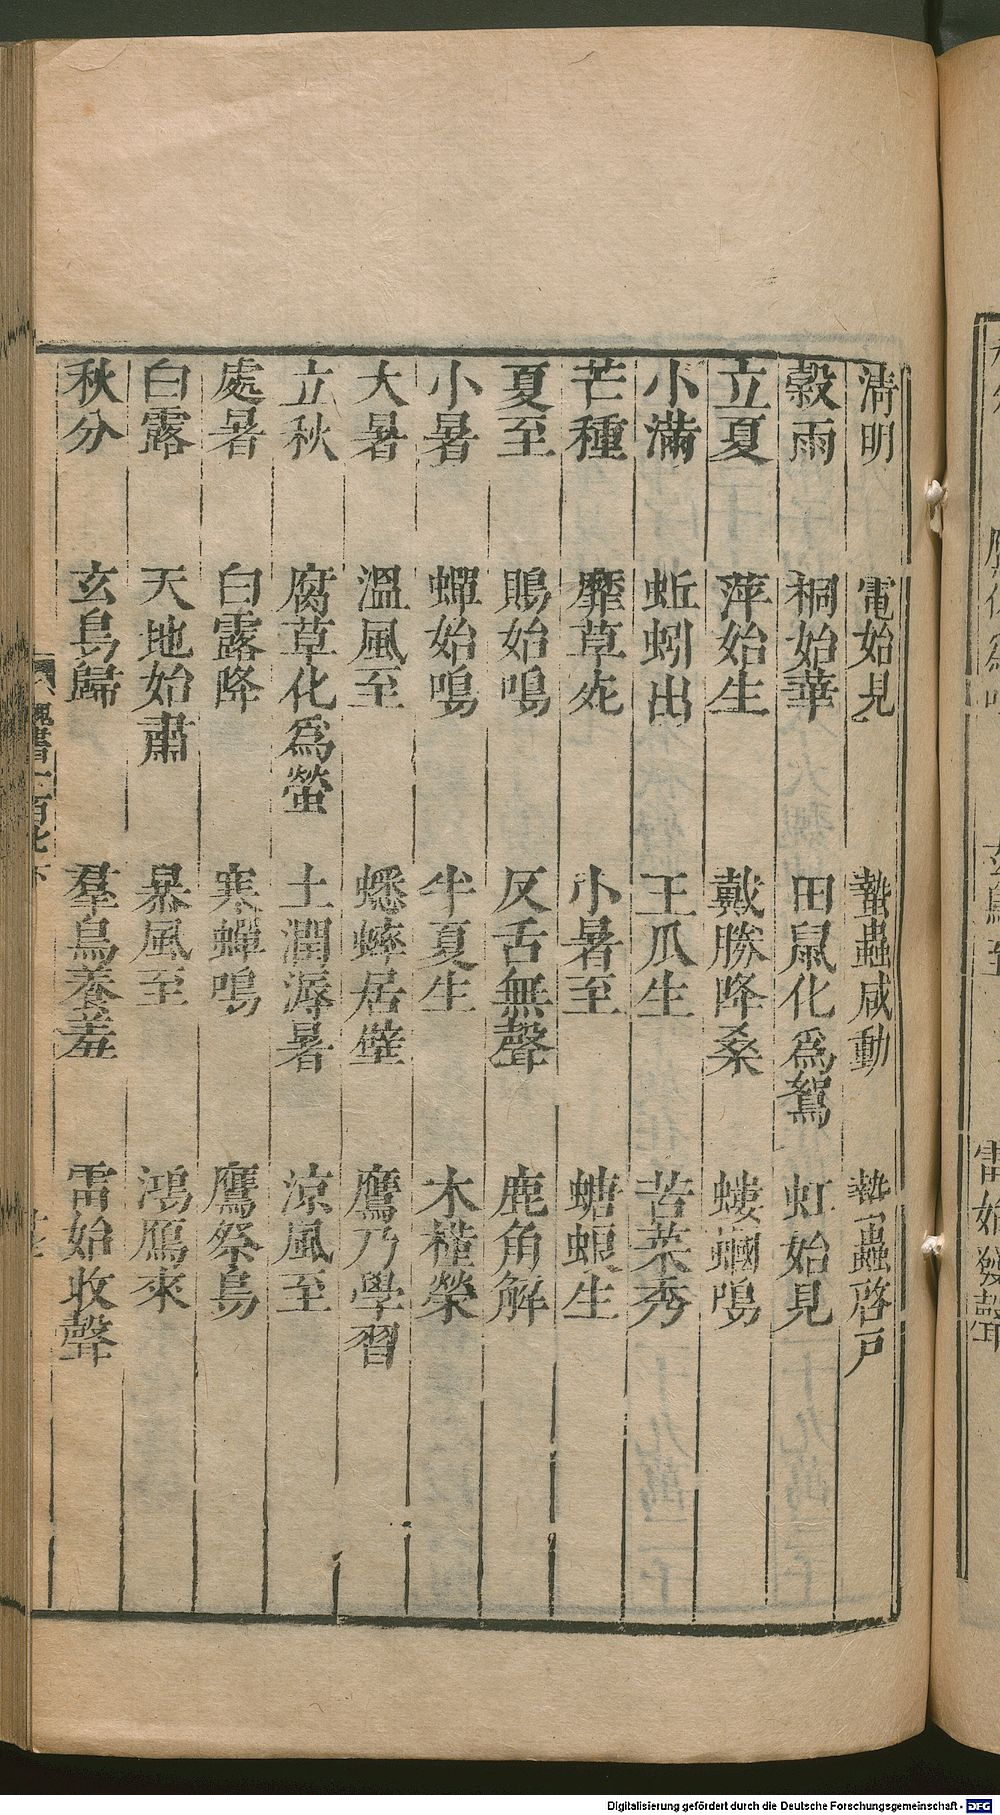 清明 電始見 蟄蟲咸動 蟄蟲啓戸
穀雨 桐始華 田鼠化爲鴽 虹始見
立夏 萍始生 戴勝降桑 螻蟈鳴
小滿 蚯蚓出 王瓜生 苦菜秀
芒種 靡草死 小暑至 螗蜋生
夏至 鵙始鳴 反舌無聲 鹿角解
小暑 蟬始鳴 半夏生 木槿榮
大暑 溫風至 蟋蟀居壁 鷹乃學習
立秋 腐草化爲螢 土潤溽暑 涼風至
處暑 白露降 寒蟬鳴 鷹祭鳥
白露 天地始肅 暴風至 鴻鴈來
秋分 玄鳥歸 羣鳥養羞 雷始收聲
魏書一百七下
玄鳥至 雷始發聲
Digitalisierung gefördert durch die Deutsche Forschungsgemeinschaft - DFG